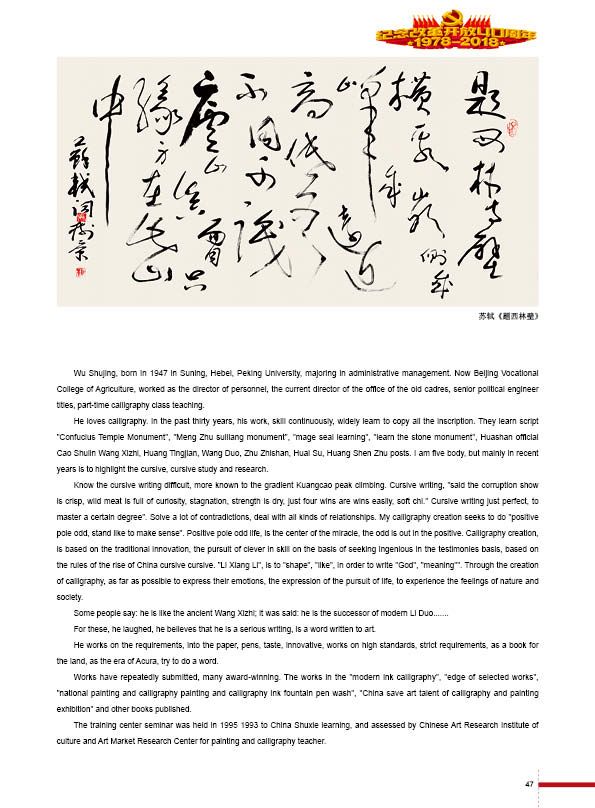 纪念改革开放40周年
1978-2018
題西林壁
横看成嶺側成
峰遠近
高低各
不同不識
廬山真面只
緣身在此山
中
蘇軾詞樹景
苏轼《题西林壁》
Wu Shujing, born in 1947 in Suning, Hebei, Peking University, majoring in administrative management. Now Beijing Vocational
College of Agriculture, worked as the director of personnel, the current director of the office of the old cadres, senior political engineer
titles, part-time calligraphy class teaching.
He loves calligraphy. In the past thirty years, his work, skill continuously, widely learn to copy all the inscription. They learn script
"Confucius Temple Monument", "Meng Zhu suiliang monument", "mage seal learning", "learn the stone monument", Huashan official
Cao Shulin Wang Xizhi, Huang Tingjian, Wang Duo, Zhu Zhishan, Huai Su, Huang Shen Zhu posts. I am five body, but mainly in recent
years is to highlight the cursive, cursive study and research.
Know the cursive writing difficult, more known to the gradient Kuangcao peak climbing. Cursive writing, "said the corruption show
is crisp, wild meat is full of curiosity, stagnation, strength is dry, just four wins are wins easily, soft chi." Cursive writing just perfect, to
master a certain degree". Solve a lot of contradictions, deal with all kinds of relationships. My calligraphy creation seeks to do "positive
pole odd, stand like to make sense". Positive pole odd life, is the center of the miracle, the odd is out in the positive. Calligraphy creation,
is based on the traditional innovation, the pursuit of clever in skill on the basis of seeking ingenious in the testimonies basis, based on
the rules of the rise of China cursive cursive. "Li Xiang Li", is to "shape", "like", in order to write "God", "meaning"". Through the creation
of calligraphy, as far as possible to express their emotions, the expression of the pursuit of life, to experience the feelings of nature and
society.
Some people say: he is like the ancient Wang Xizhi; it was said: he is the successor of modern Li Duo.......
For these, he laughed, he believes that he is a serious writing, is a word written to art.
He works on the requirements, into the paper, pens, taste, innovative, works on high standards, strict requirements, as a book for
the land, as the era of Acura, try to do a word.
Works have repeatedly submitted, many award-winning. The works in the "modern ink calligraphy", "edge of selected works",
"national painting and calligraphy painting and calligraphy ink fountain pen wash", "China save art talent of calligraphy and painting
exhibition" and other books published.
The training center seminar was held in 1995 1993 to China Shuxie learning, and assessed by Chinese Art Research Institute of
culture and Art Market Research Center for painting and calligraphy teacher.
47